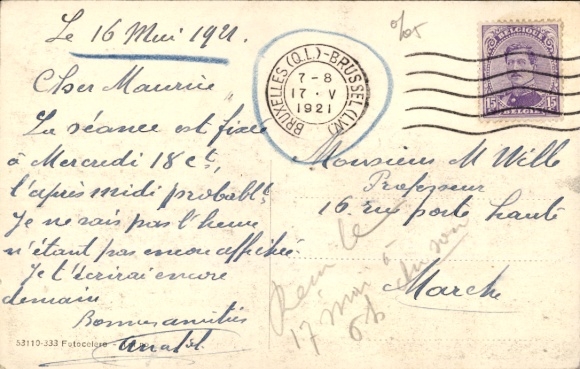 Le 16 Mai 1921.
Cher Maurice
La séance est fixée
à Mercredi 18 ct,
l'après midi probablt
Je ne sais pas l'heure
n'étant pas encore affichée
Je t'écrirai encore
demain
Bonnes amitiés
53110-333 Fotocolore
BRUXELLES (Q.L.)-BRUSSEL (L.W.)
7-8
17·V
1921
BELGIQUE
15 15
BELGIE
Monsieur M Wille
Professeur
16 rue porte haute
Marche
17 mai à
6h